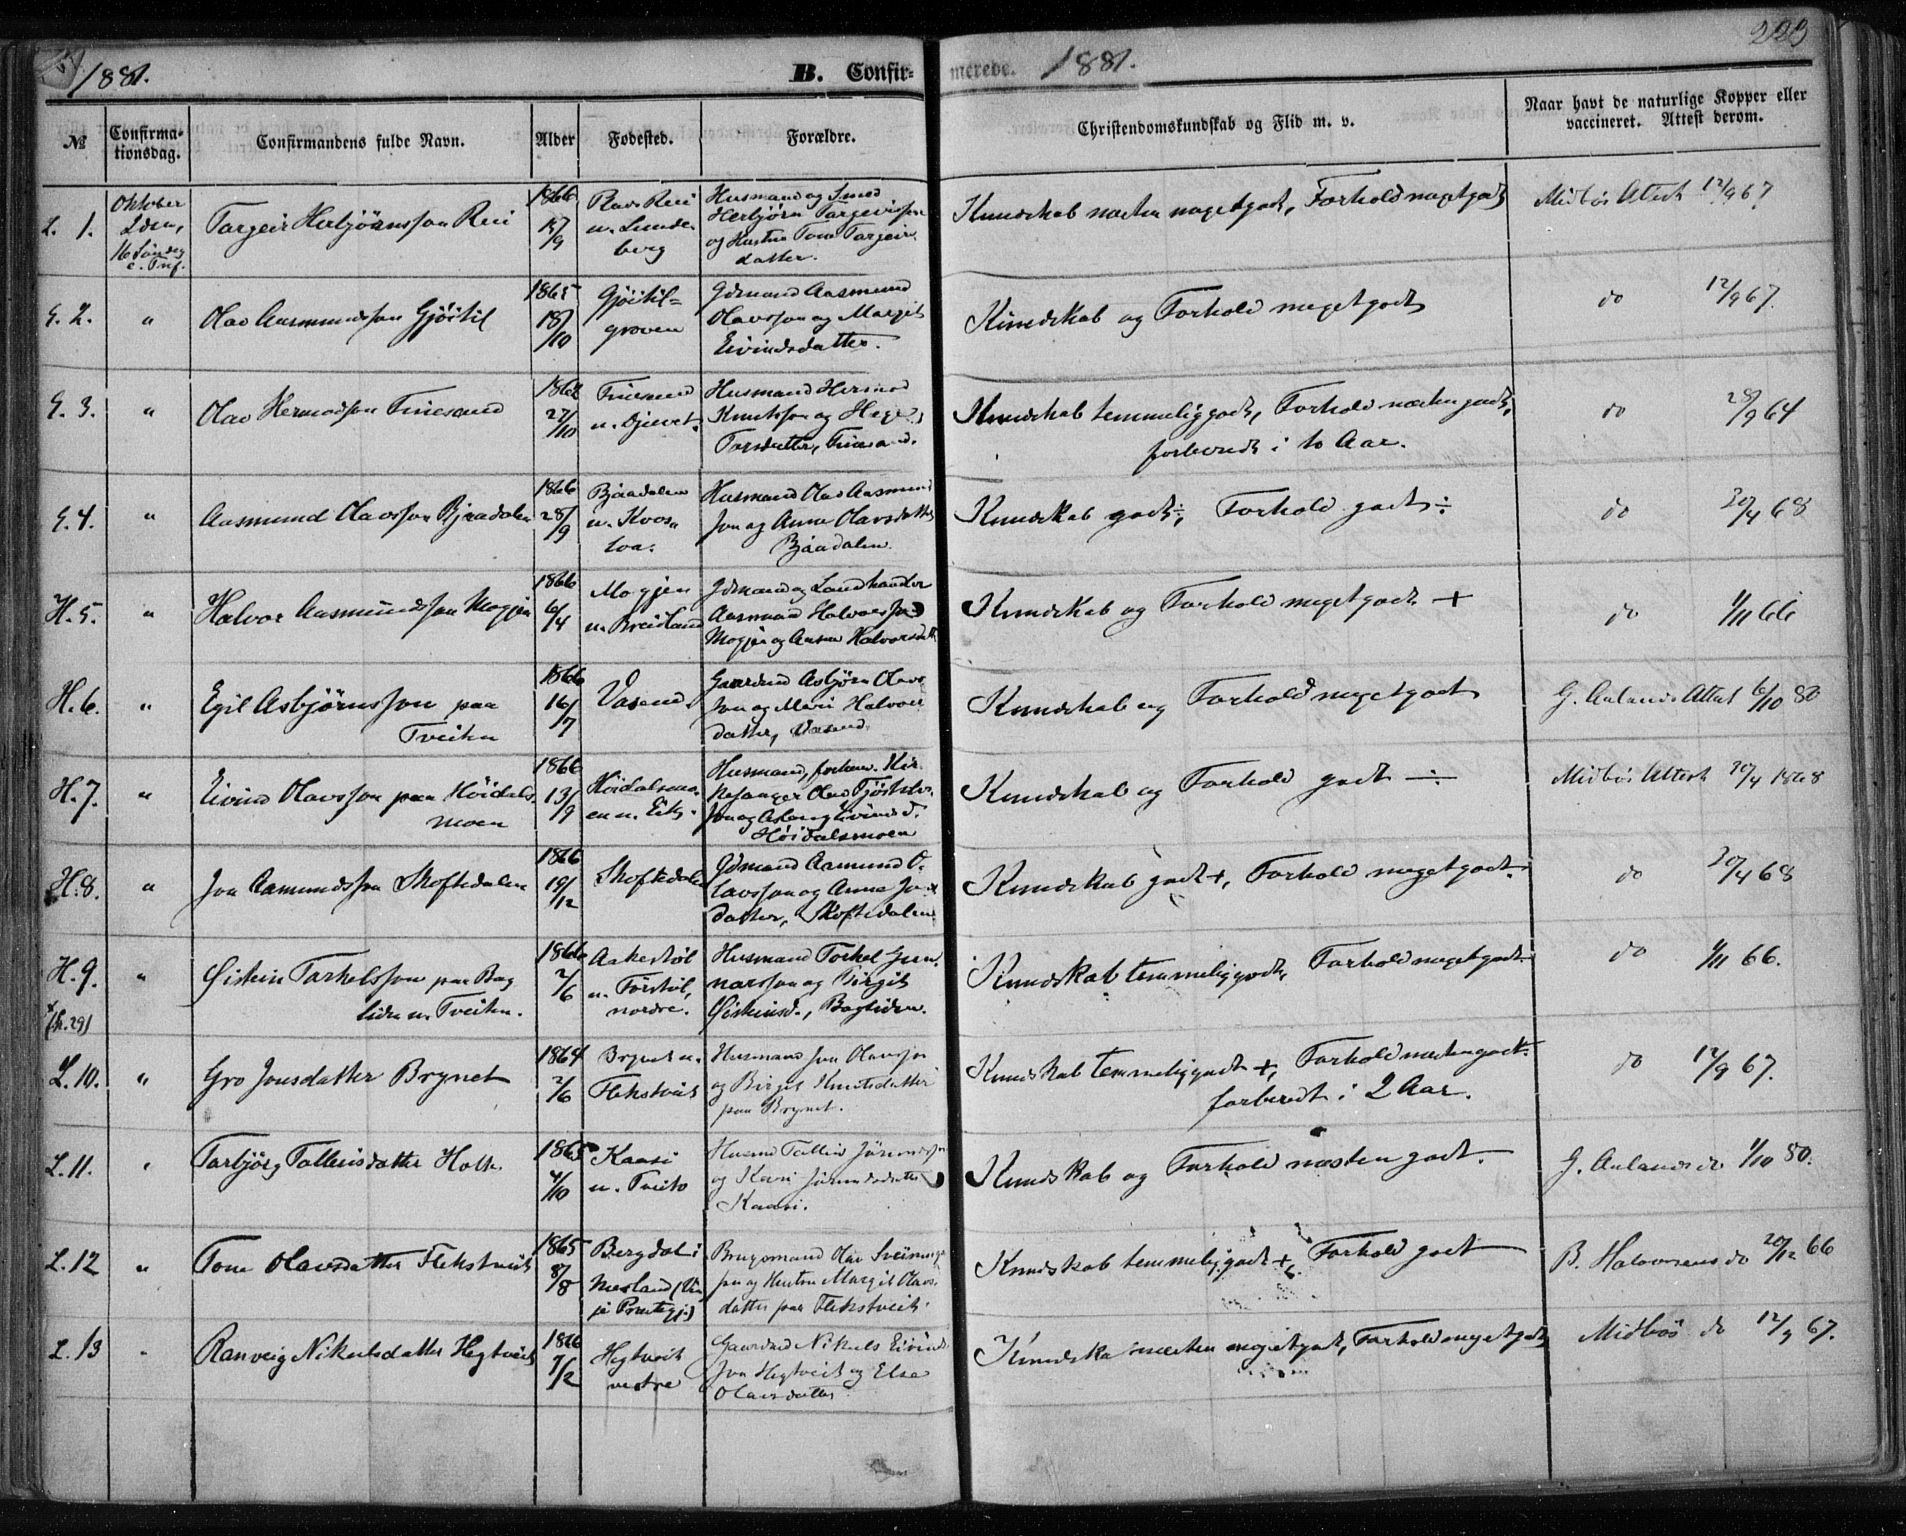 1881.
B. Confir-
merede. 1881.
223
№
Confirma-
tionsdag.
Confirmandens fulde Navn.
Alder
Fødested.
Forældre.
Christendomskundskab og Flid m. v.
Naar havt de naturlige Kopper eller
vaccineret. Attest derom.
L. 1.
Oktober
2den,
16 Søndag
e. Trif.
Targeir Herbjørnsson Rui
1866
17/9
Rui
u. Lunde-
berg
Husmand og Smed
Herbjørn Targeirsson
og Hustru Tone Targeirs-
datter.
Kundskab næsten megetgodt, Forhold megetgodt
Midbøs Attest 12/9 67
G. 2.
"
Olav Aasmundsson Gjøitil
1865
18/10
Gjøitil-
groven
Gdmand Aasmund
Olavsson og Margit
Eivindsdatter.
Kundskab og Forhold megetgodt
do 12/9 67.
G. 3.
"
Olav Hermodson
27/10
Husmand Hermod
Knutsson og Hæge
Torsdatter,
Kundskab temmeliggodt, Forhold næstengodt,
forberedt i to Aar.
do 28/9 64
G. 4.
"
Aasmund Olavsson Bjaadalen
1866
28/9
Bjaadalen
Husmand Olav Aasmund
son og Anne Olavsdatter
Bjaadalen
Kundskab godt÷, Forhold godt÷
do 30/4 68
H. 5.
"
Halvor Aasmundsson Mogjen
1866
6/4
Mogjen
u. Breiland
Gdmand og Landhandler
Aasmund Halvorsson
Mogjen og Halvorsdtr
Kundskab og Forhold megetgodt +
do 1/11 66
H. 6.
"
Egil Asbjørnsson paa
Tveiten
1866
16/7
Vasend
Gaardmd Asbjørn Olavs
son og Halvors
datter, Vasend.
Kundskab og Forhold megetgodt
G. Aalands Attest 6/10 80
H. 7.
"
Eivind Olavsson paa Høidals
moen
1866
13/9
Høidalsmo-
en u. Eik.
Husmand, forhen. Kir-
kesanger Olav Tjøstolvs-
son og Aslaug Eivindsd.
Høidalsmoen
Kundskab og Forhold godt ÷
Midbøs Attest 30/4 1868
H. 8.
"
Jon Aamundsson Skoftedalen
1866
19/12
Skoftedalen
Gdmand Aamund O-
lavsson og Anne Jons
datter, Skoftedalen
Kundskab godt+, Forhold megetgodt
do 30/4 68
H. 9.
(L. 29)
"
Øistein Tarkelsson paa Bag
liden u. Tveiten.
1866
2/6
nordre.
Husmand Torkel Gun-
narsson og Birgit
Øisteinsd., Bagliden.
Kundskab temmeliggodt, Forhold megetgodt
do 1/11 66.
L. 10.
"
Gro Jonsdatter Brynet
1864
2/6
Brynet u.
Flekstveit
Husmand Jon Olavsson
og Birgit Knutsdatter
paa Brynet.
Kundskab temmeliggodt +, Forhold næstengodt
forberedt i 2 Aar.
do 12/9 67.
L. 11.
"
Tarbjørg Talleivsdatter Holte
1865
4/10
Kaasi
u. Tveito
Husmd Talleiv
og Kari
Kaasi.
Kundskab og Forhold næsten godt.
G. Aalands do 1/10 80.
L. 12
"
Tone Olavsdatter Flekstveit
1865
8/8
Bergdal i
Nesland (Vin
je Prestegj.)
Brugsmand Olav Sveinungs
son og Hustru Margit Olavs
datter paa Flekstveit.
Kundskab temmeliggodt +, Forhold godt
B. Halvorsens do 20/12 66
L. 13
"
Ranveig Nikulsdatter Hegtveit
1866
7/2
Hegtveit
vestre
Gaardmd Nikuls Eivinds
son Hegtveit og Else
Olavsdatter
Kundskab næsten megetgodt, Forhold megetgodt
Midbøs do 12/9 67.